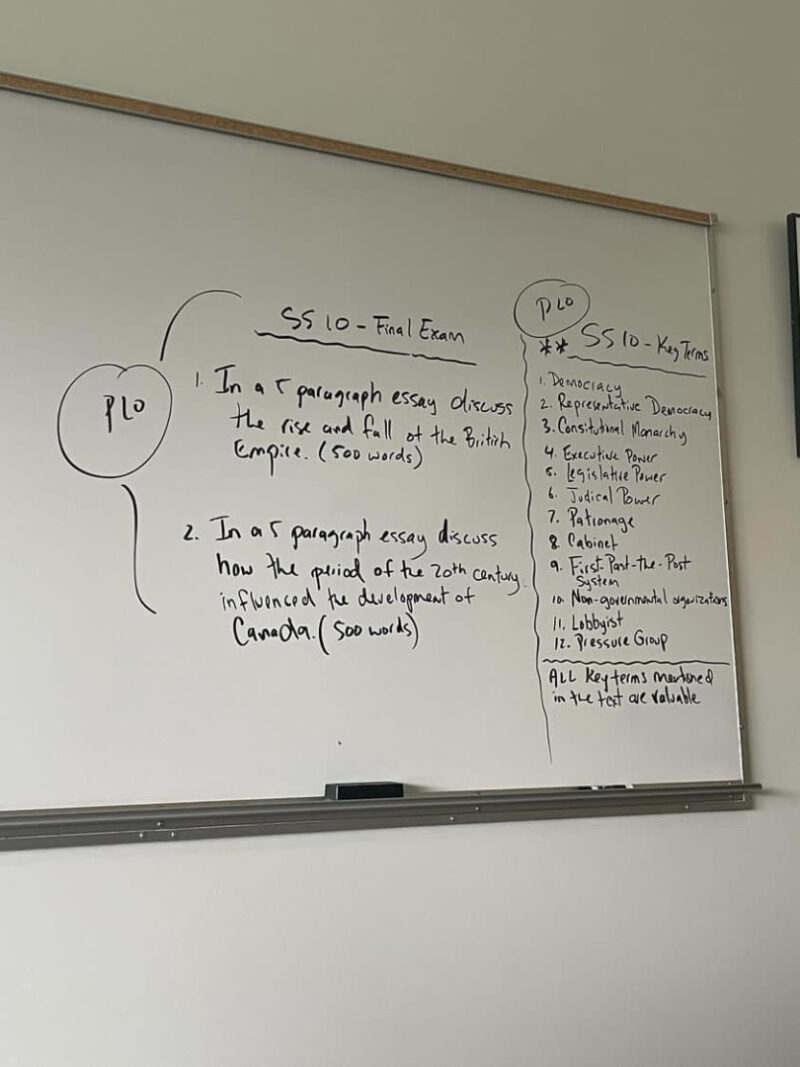 PLO
SS 10 - Final Exam
1. In a 5 paragraph essay discuss
the rise and fall of the British
Empire. (500 words)
2. In a 5 paragraph essay discuss
how the period of the 20th century
influenced the development of
Canada. (500 words)
PLO
** SS 10 - Key Terms
1. Democracy
2. Representative Democracy
3. Consitutional Monarchy
4. Executive Power
5. Legislative Power
6. Judical Power
7. Patronage
8. Cabinet
9. First-Past-the-Post
System
10. Non-governmental organizations
11. Lobbyist
12. Pressure Group
ALL Key terms mentioned
in the text are valuable